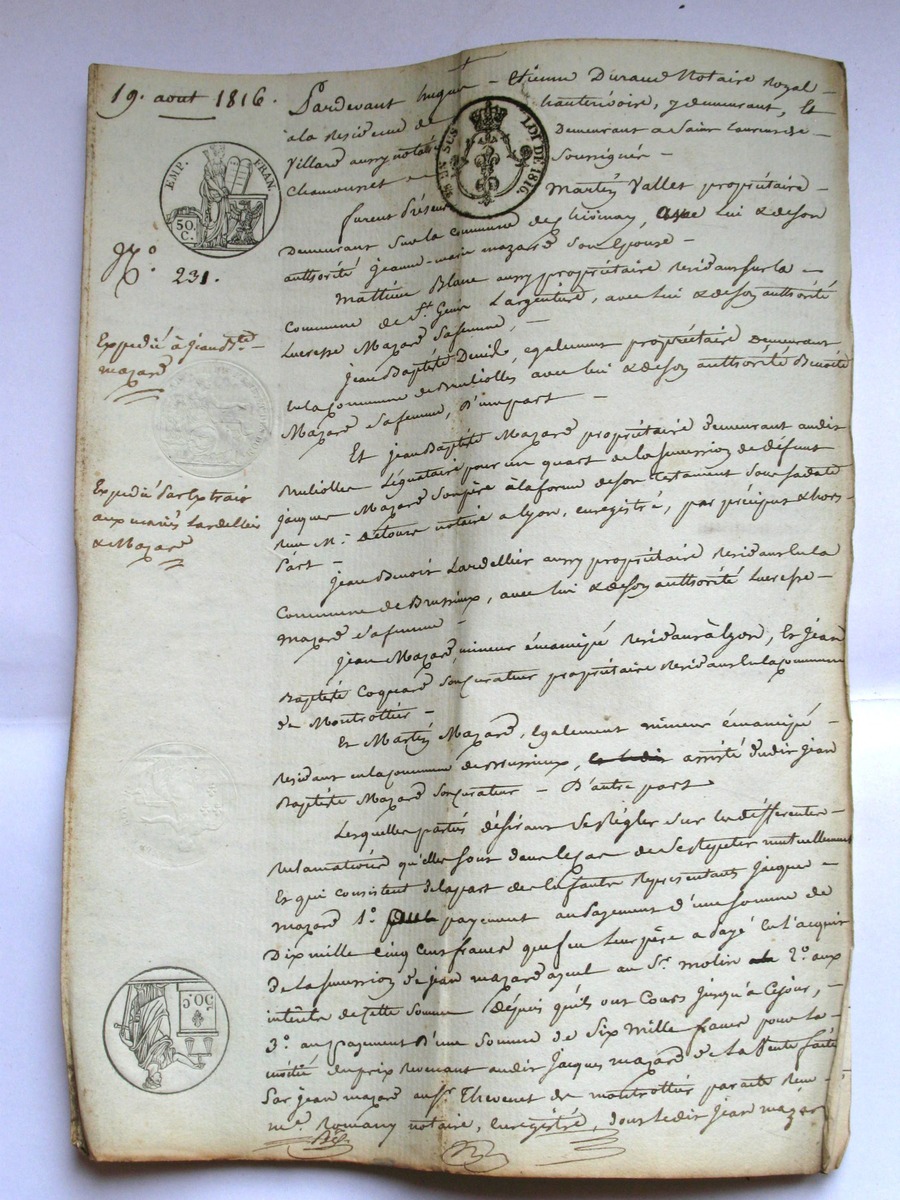 19. aout 1816.
Pardevant hugue - Etienne Durand Notaire Royal
à la Residence de hauterivoire, y demeurant, Et
Villard aussy notable Demeurant a Saint Laurens de
Chamousset Soussignés
EMP. FRAN.
50. C.
EN SUS
LOI DE 1816.
furent Présens Martin Vallet propriétaire
Demeurant Sur la commune de lui & de Son
authorité jeanne-marie mazard Son Epouse
N.º
231.
Mathieu Blanc aussy propriétaire residant Sur la
Commune de St. Genis L'argentiere, avec lui & de Son authorité
Lucresse Mazard Safemme,
Expedié à jean Bte.
mazard
Jean Baptiste Denis, egalement propriétaire Demeurant
en la commune de Brulliolles avec lui & de Son authorité Benoite
Mazard Safemme, D'une part
Et jean Baptiste Mazard propriétaire demeurant audit
Brulioller Légataire pour un quart de la succession de défunt
jacques Mazard Son père à la forme de Son testament Sous Sa date
Reçu Me. Detours notaire a lyon, enregistré, par préciput & hors
Part
Expedié Par Extrait
aux mariés Lardellier
& Mazard
jean Benoit Lardellier aussy propriétaire residant en la
Commune de Brussieux, avec lui & de Son authorité Lucresse
mazard Safemme
jean Mazard mineur émancipé Residant à lyon, Et jean
Baptiste Coquard Son curateur propriétaire Residant en la commune
de Montrottier
Et Martin Mazard, Egalement mineur émancipé
Residant en la commune de Brussieux, assisté dudit jean
Baptiste Mazard Son curateur - D'autre part
Lesquelles parties désirant Se Régler Sur les différentes
Reclamations qu'elles sont dans le cas de Se Repeter mutuellement
Et qui consistent de la part des Enfants Representants jacques
mazard 1.º au Payement d'une Somme de
Dix mille Cinq Cent francs que feu leur père a Payé en l'acquit
de la Succession de jean mazard ayeul au Sr. molin 2.º aux
intérêts de cette Somme depuis qu'ils ont Cours jusqu'à Cejour,
3.º au payement D'une Somme de Six Mille francs pour la
moitié du prix Revenant audit jacques mazard de la Vente faite
Par jean mazard au Sr. Thevenet de montrottier par acte Reçu
Me. Romany notaire, Enregistré, dont ledit jean mazard
50. C.